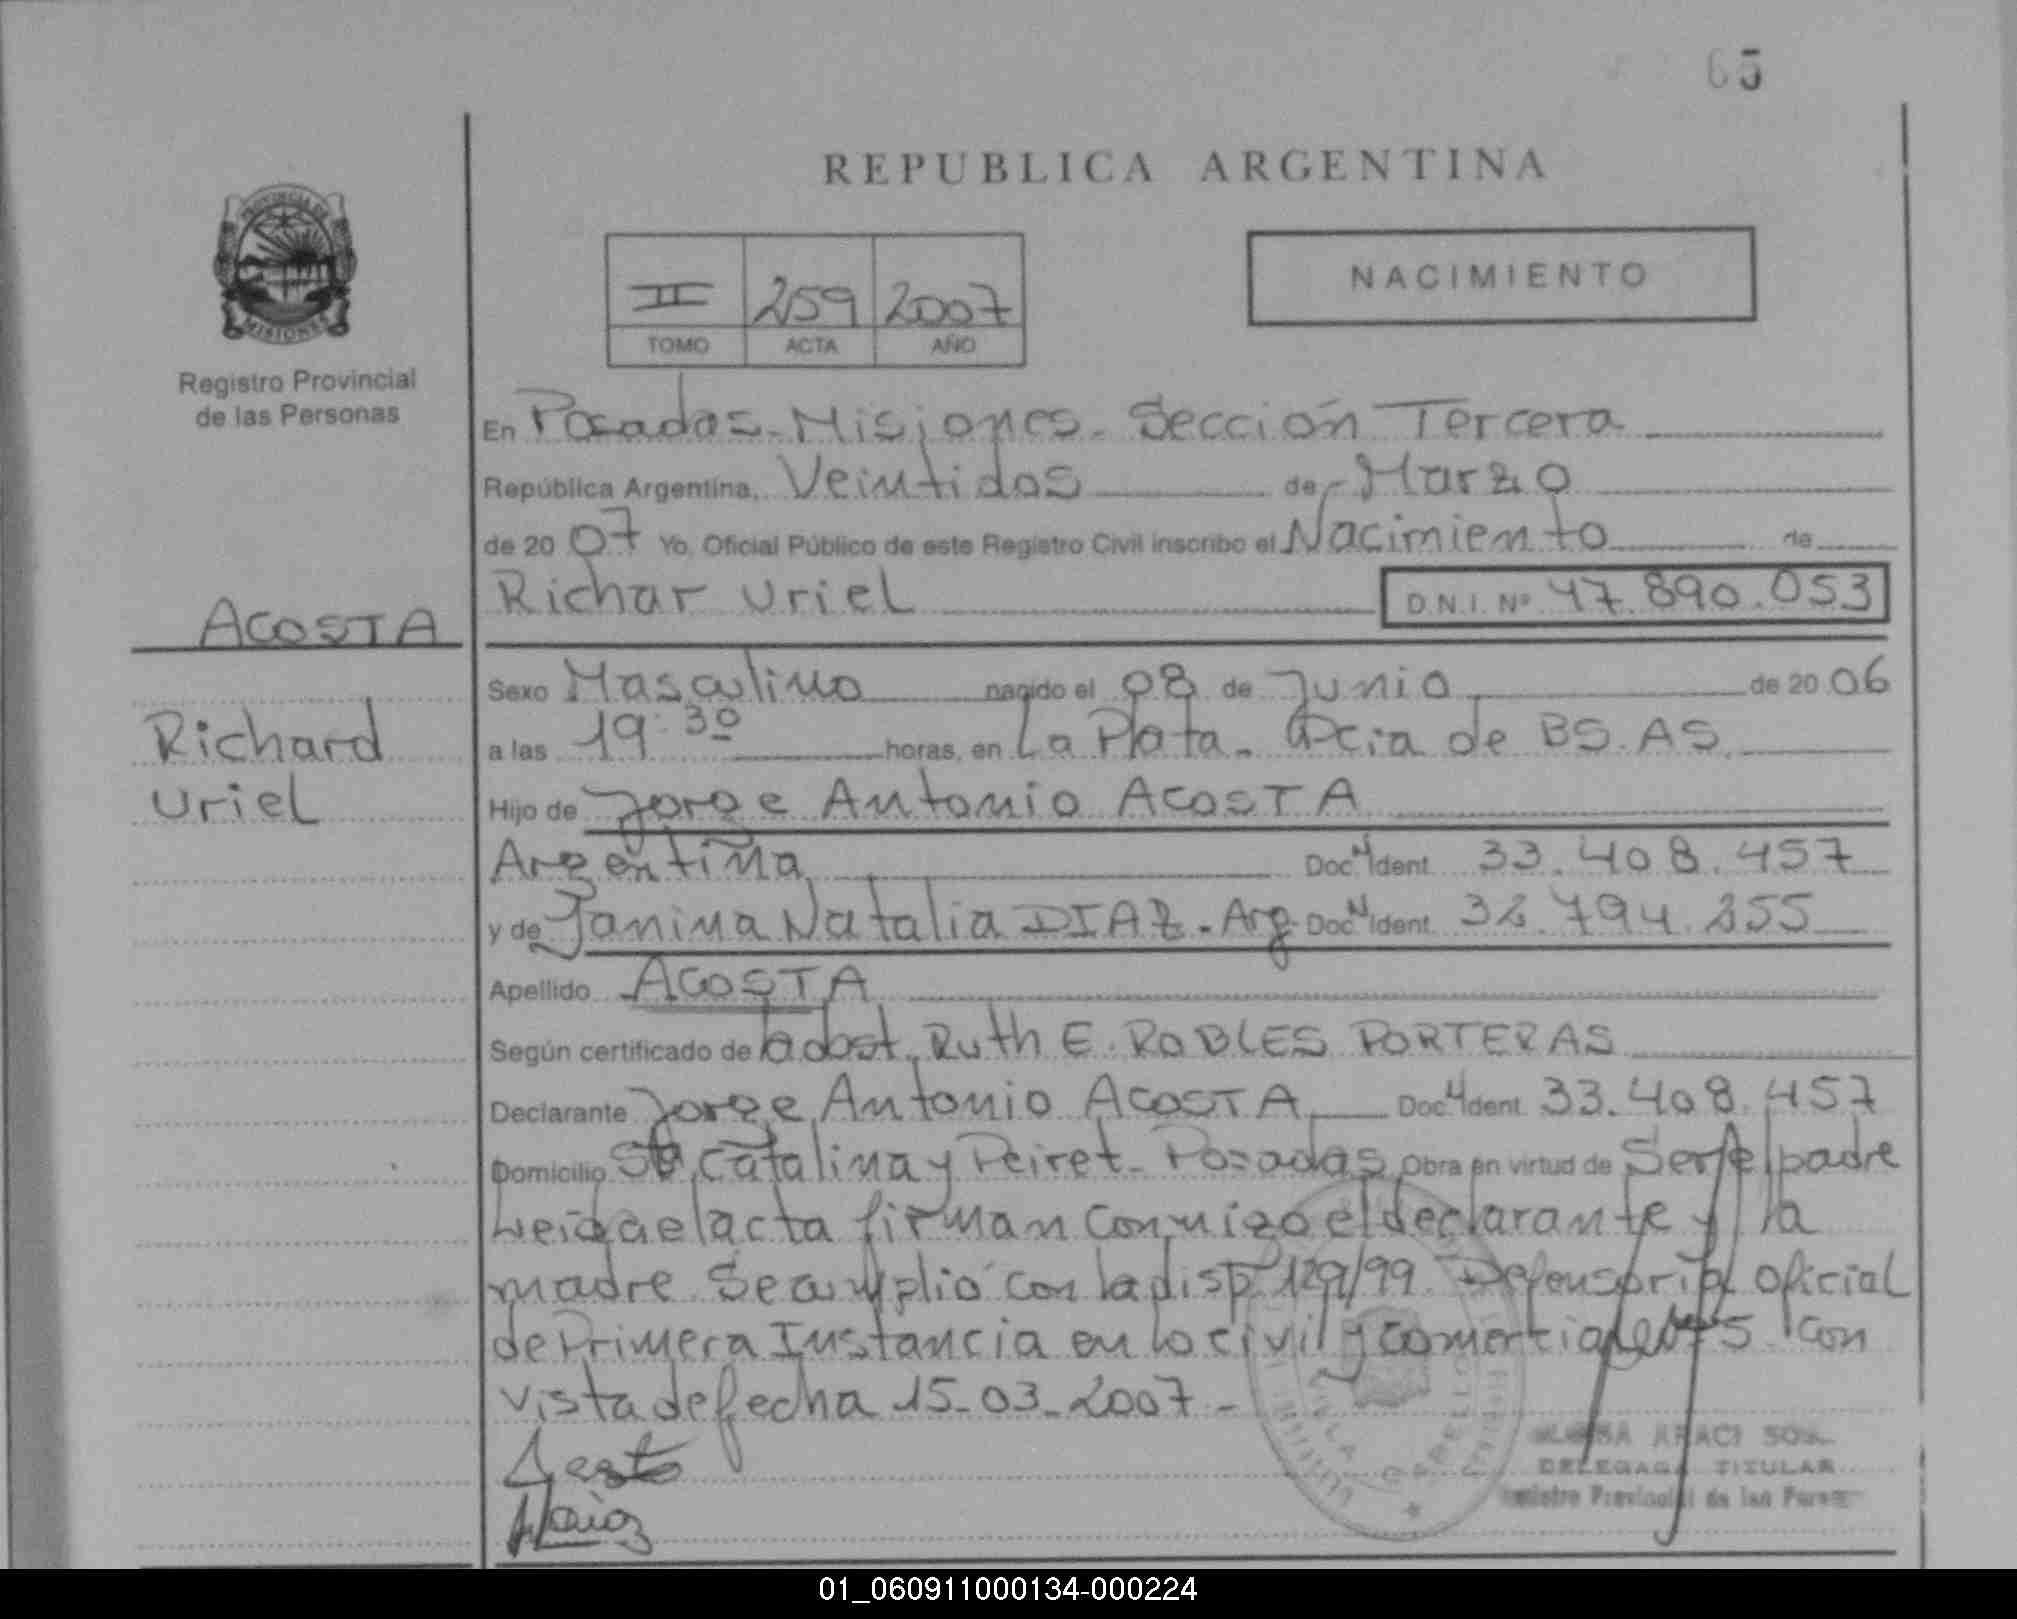 65
REPUBLICA ARGENTINA
PROVINCIA DE
MISIONES
Registro Provincial
de las Personas
II 259 2007
TOMO ACTA AÑO
NACIMIENTO
En Posadas - Misiones - Sección Tercera
República Argentina, Veintidos de Marzo
de 20 07 Yo, Oficial Público de este Registro Civil inscribo el Nacimiento de
Richar Uriel D.N.I. Nº 47.890.053
ACOSTA
Richard
Uriel
Sexo Masculino nacido el 08 de Junio de 20 06
a las 19:30 horas, en La Plata - Pcia de BS.AS.
Hijo de Jorge Antonio ACOSTA
Argentina Doc. Ident. 33.408.457
y de Janina Natalia DIAZ - Arg. Doc. Ident. 32.794.255
Apellido ACOSTA
Según certificado de obst. Ruth E. ROBLES PORTERAS
Declarante Jorge Antonio ACOSTA Doc. Ident. 33.408.457
Domicilio Sta Catalina y Peiret - Posadas Obra en virtud de Ser el padre
Leida el acta firman conmigo el declarante y la
madre. Se cumplió con la disp. 129/99. Defensoria Oficial
de Primera Instancia en lo civil y comercial Nº 5 con
vista de fecha 15-03-2007 -
DELEGADA TITULAR
Registro Provincial de las Personas
01_060911000134-000224